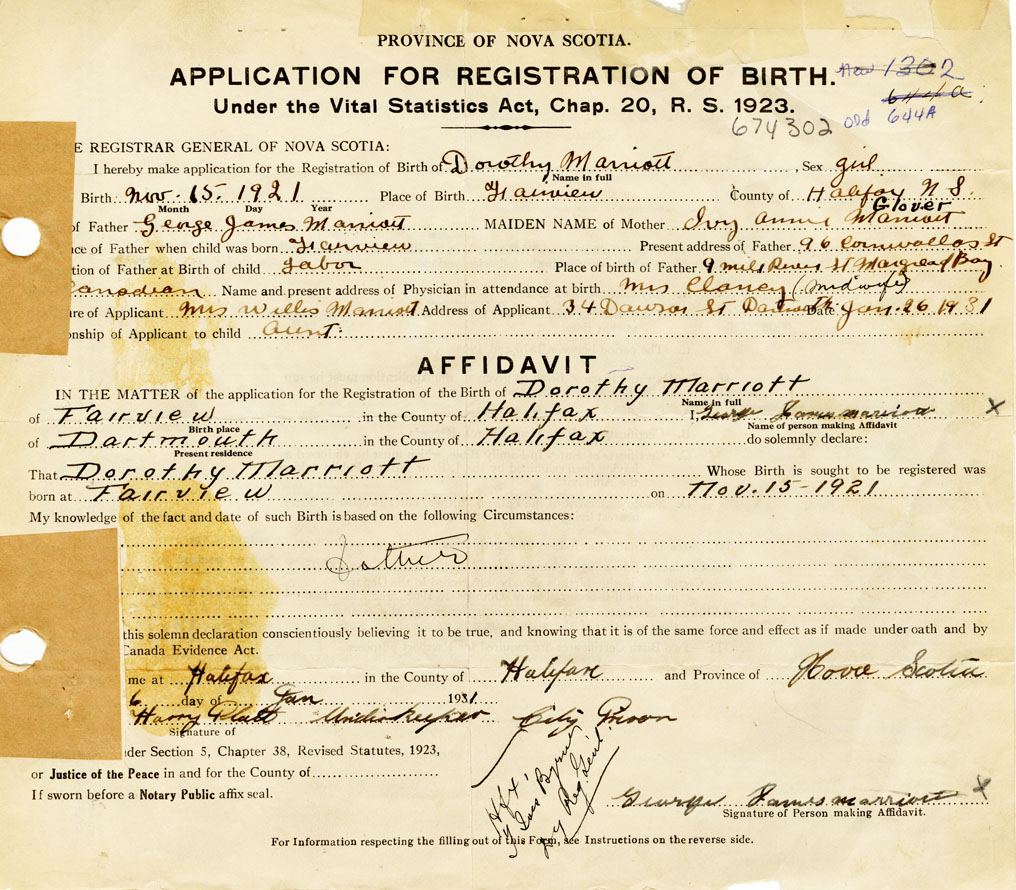 PROVINCE OF NOVA SCOTIA.
APPLICATION FOR REGISTRATION OF BIRTH. New 1302
Under the Vital Statistics Act, Chap. 20, R. S. 1923.
674302 Old 644A
E REGISTRAR GENERAL OF NOVA SCOTIA:
I hereby make application for the Registration of Birth of Dorothy Marriott, Sex girl
Name in full
Birth Nov. 15. 1921 Place of Birth Fairview County of Halifax N S.
Month Day Year
Glover
of Father George James Marriott MAIDEN NAME of Mother Ivy Annie Marriott
ce of Father when child was born Fairview Present address of Father 96 Cornwallas St
tion of Father at Birth of child Labor Place of birth of Father 9 mile River St Margreat Bay
Canadian Name and present address of Physician in attendance at birth Mrs Clancy (midwife)
re of Applicant Mrs Willis Marriott Address of Applicant 34 Dawson St Dartmouth Date Jan. 26 1931
onship of Applicant to child Aunt.
AFFIDAVIT
IN THE MATTER of the application for the Registration of the Birth of Dorothy Marriott
Name in full
of Fairview in the County of Halifax I, George James marriott X
Birth place Name of person making Affidavit
of Dartmouth in the County of Halifax do solemnly declare:
Present residence
That Dorothy Marriott Whose Birth is sought to be registered was
born at Fairview on Nov. 15-1921
My knowledge of the fact and date of such Birth is based on the following Circumstances:
Father
this solemn declaration conscientiously believing it to be true, and knowing that it is of the same force and effect as if made under oath and by
Canada Evidence Act.
me at Halifax in the County of Halifax and Province of Nova Scotia
6 day of Jan 1931.
Harry Platt Underkeeper City Prison
Signature of
der Section 5, Chapter 38, Revised Statutes, 1923,
or Justice of the Peace in and for the County of
If sworn before a Notary Public affix seal.
Hfx,
Byrne
Dy Reg. Gen'l.
George James marriott X
Signature of Person making Affidavit.
For Information respecting the filling out of this Form, see Instructions on the reverse side.